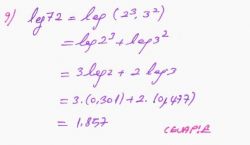 9) log72 = log (2³, 3²)
= log2³ + log3²
= 3log2 + 2 log3
= 3.(0,301) + 2.(0,477)
= 1,857
CEVAP:E